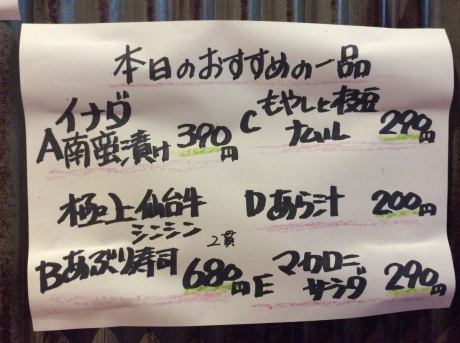 本日のおすすめの一品
イナダ
A南蛮漬け 390円
C もやしと枝豆
ナムル 290円
極上仙台牛
シンシン
Bあぶり寿司 2貫 680円
D あら汁 200円
E マカロニ
サラダ 290円